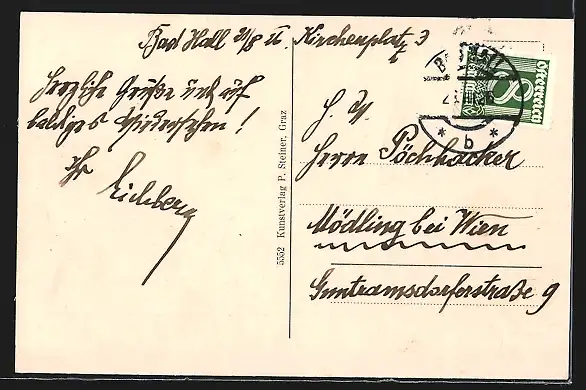 Bad Hall 21/8 Kirchenplatz 3
Herzliche Grüße und auf
baldiges Wiedersehen!
Ihr
Eichberg
5552 Kunstverlag P. Steiner, Graz
Österreich
8
* b *
Herrn Pöchhacker
Mödling bei Wien
Guntramsdorferstraße 9